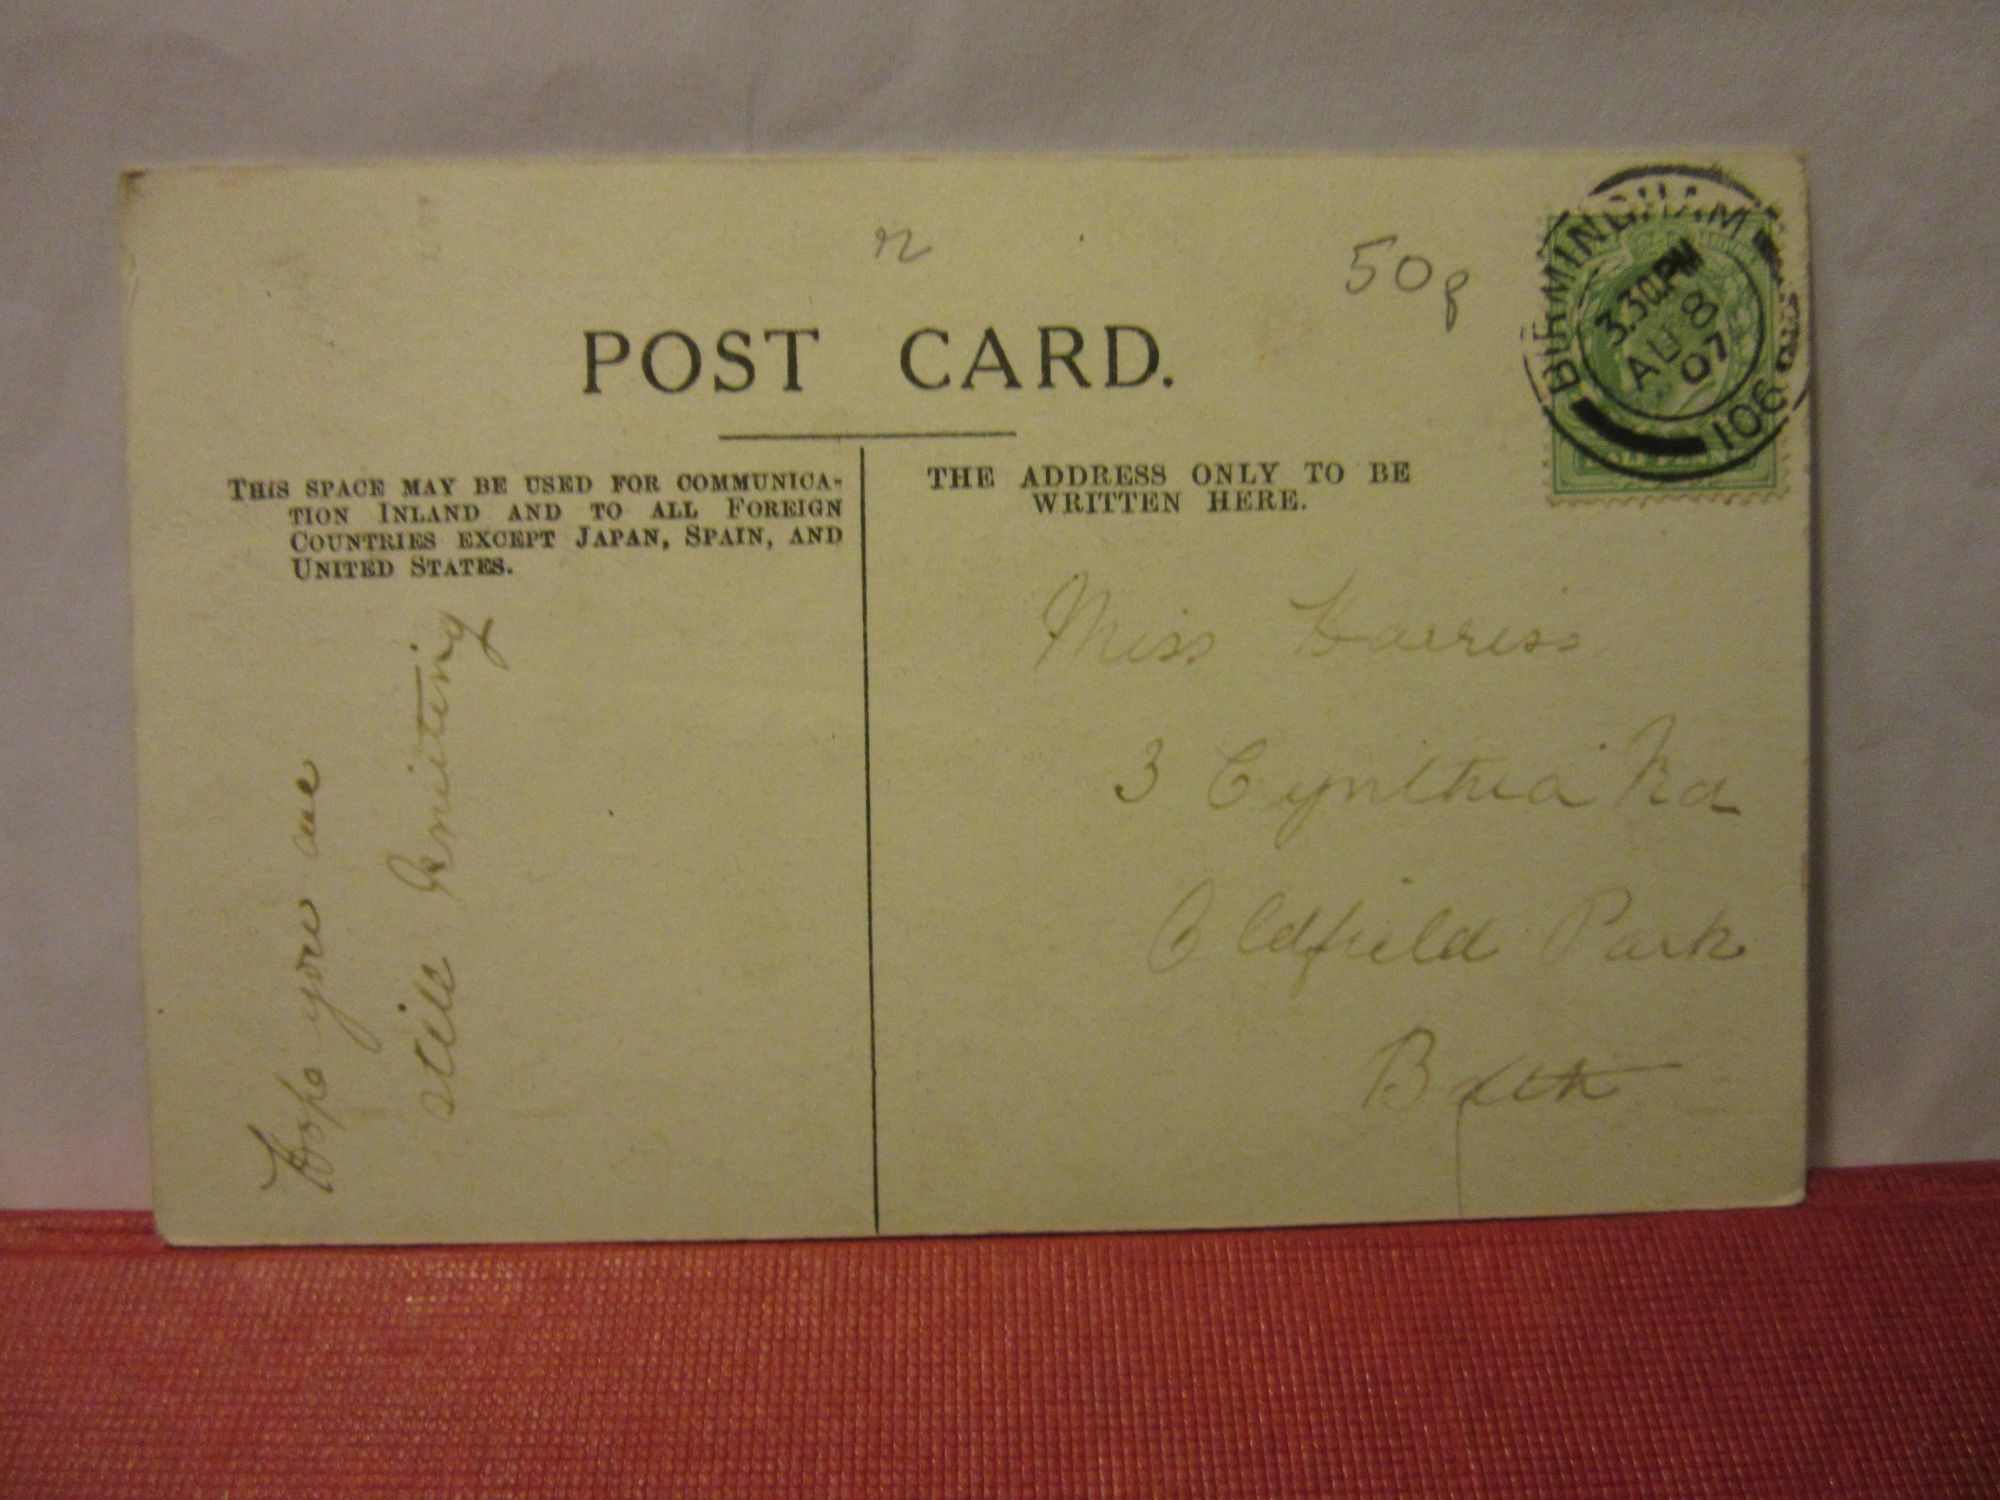 50p
POST CARD.
BIRMINGHAM
3.30PM
AU 8
07
106
THIS SPACE MAY BE USED FOR COMMUNICA-
TION INLAND AND TO ALL FOREIGN
COUNTRIES EXCEPT JAPAN, SPAIN, AND
UNITED STATES.
THE ADDRESS ONLY TO BE
WRITTEN HERE.
Hope you are
still knitting
Miss Harriss
3 Cynthia Rd
Oldfield Park
Bath